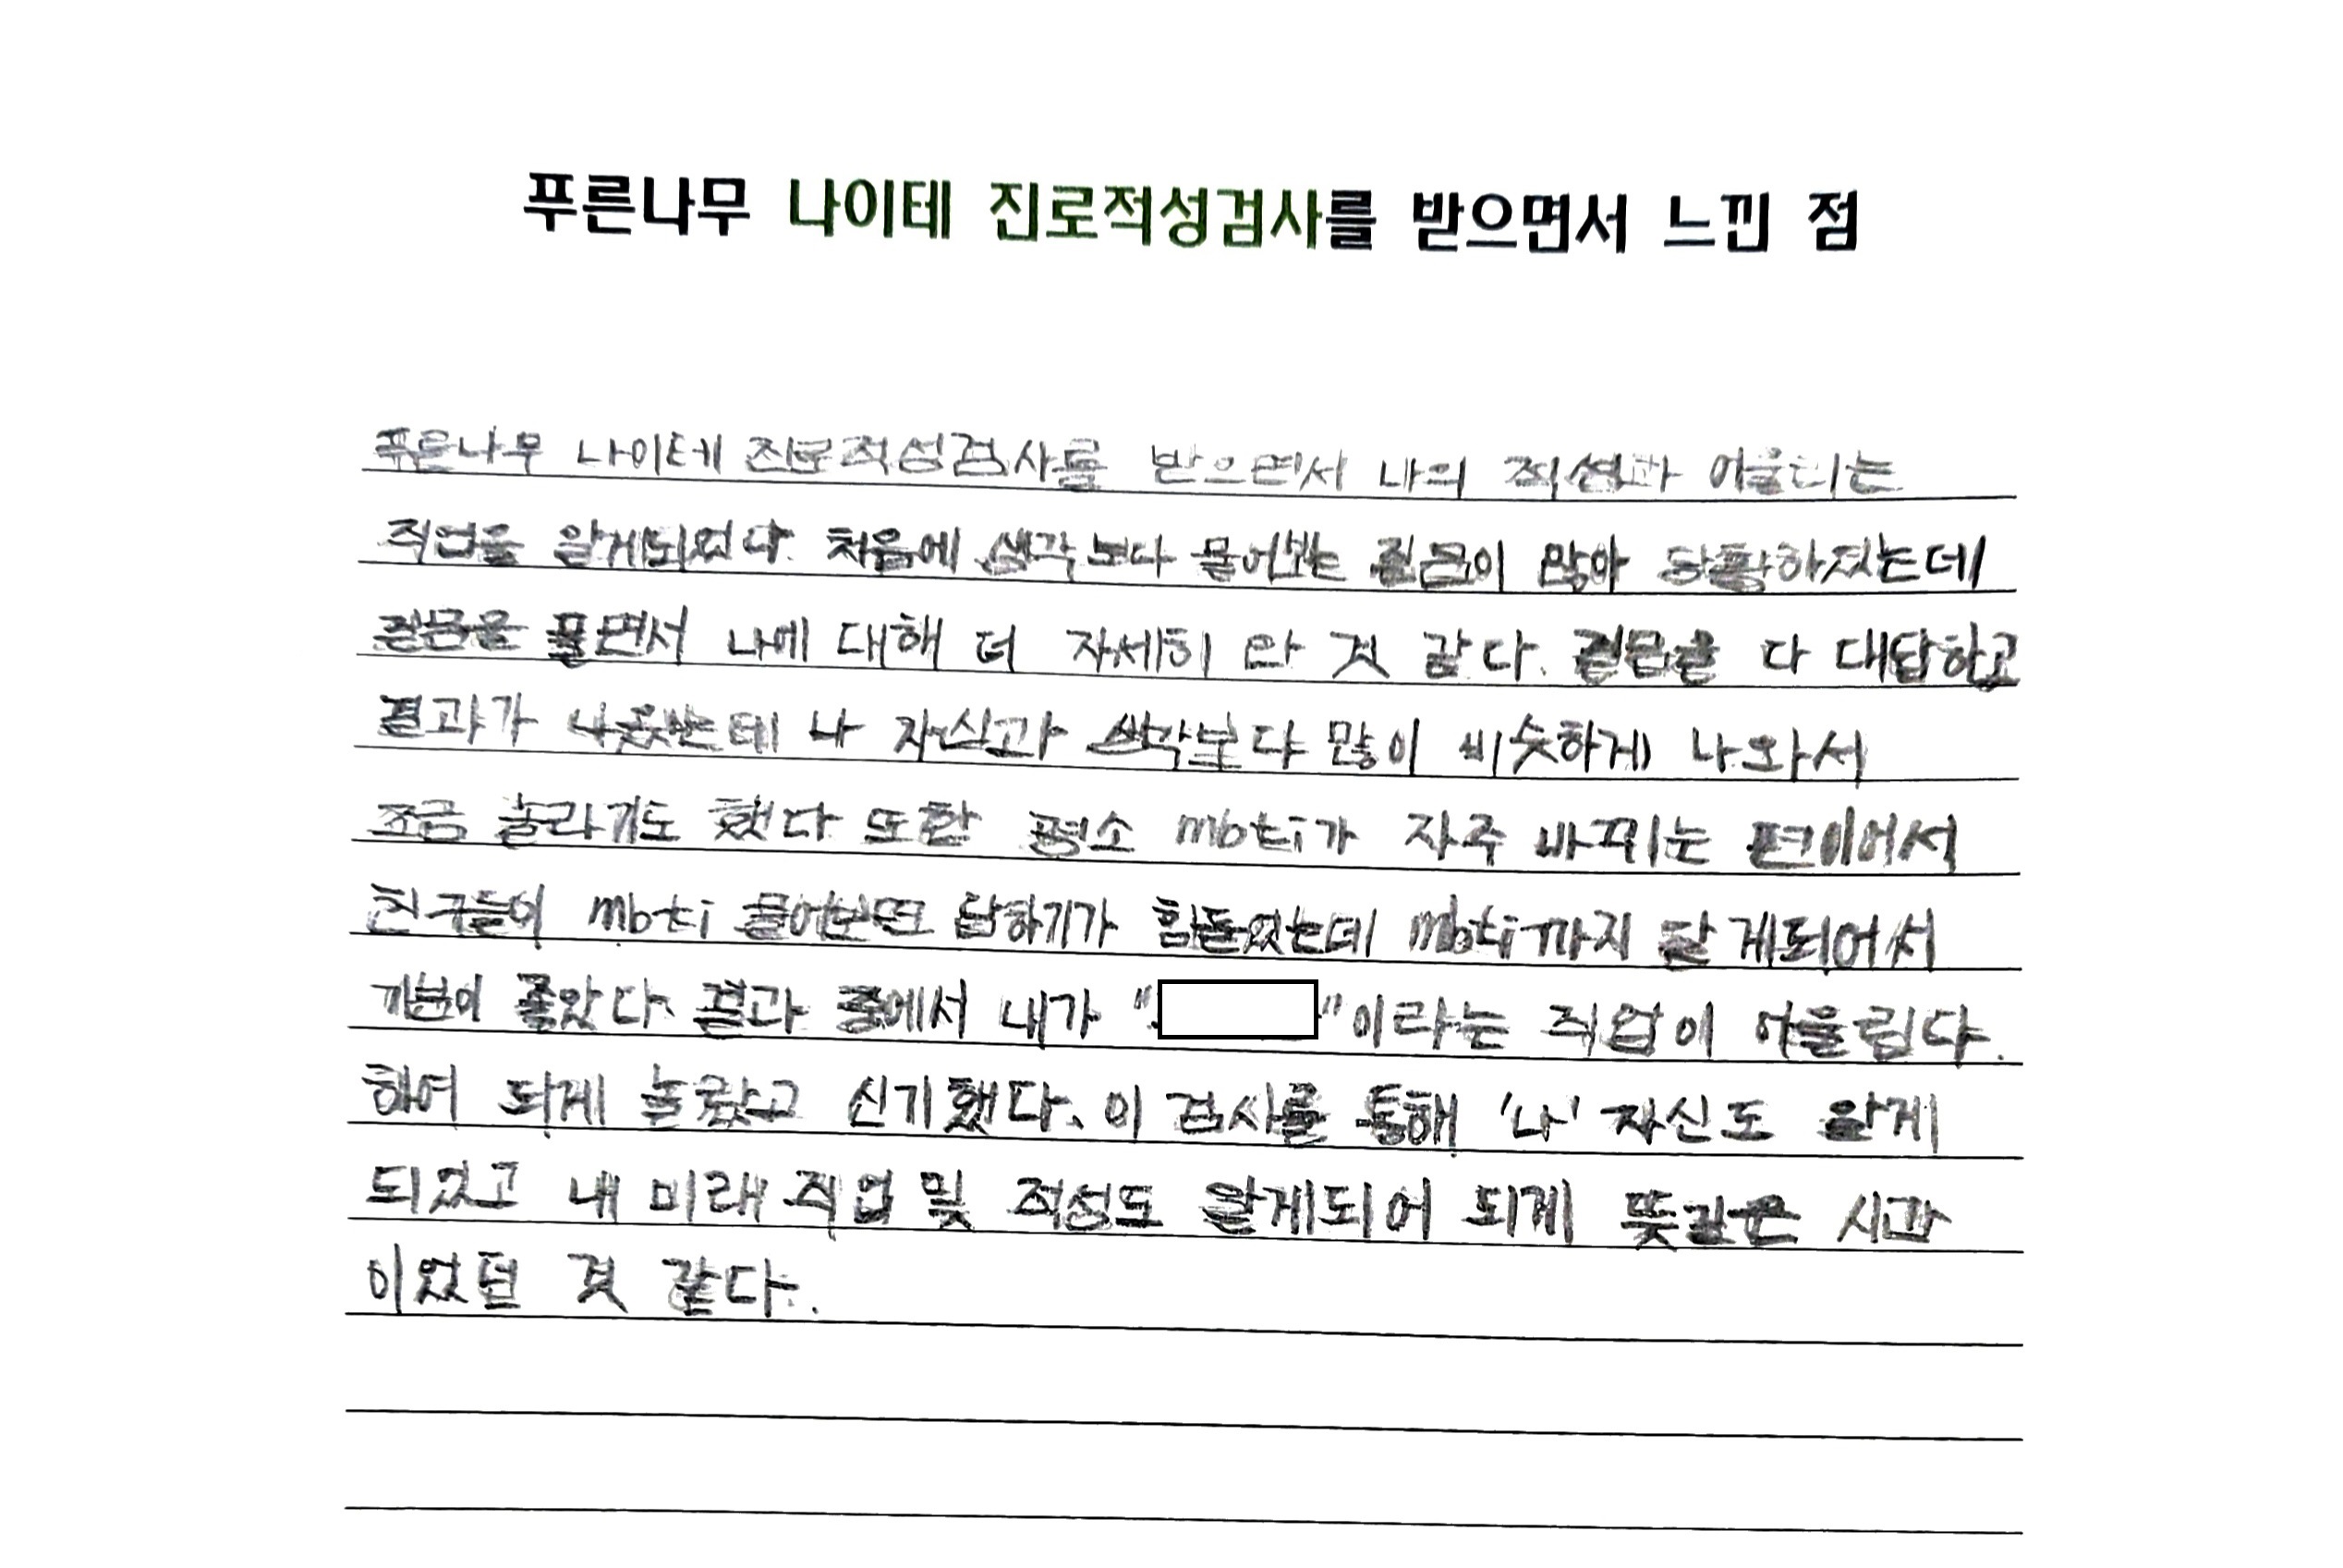 푸른나무 나이테 진로적성검사를 받으면서 느낀 점
푸른나무 나이테 진로적성검사를 받으면서 나의 적성과 어울리는
직업을 알게되었다. 처음에 생각보다 물어보는 질문이 많아 당황하였는데
질문을 풀면서 나에 대해 더 자세히 안 것 같다. 질문을 다 대답하고
결과가 나왔는데 나 자신과 생각보다 많이 비슷하게 나와서
조금 놀라기도 했다 또한 평소 mbti가 자주 바뀌는 편이어서
친구들이 mbti 물어보면 답하기가 힘들었는데 mbti까지 알게되어서
기분이 좋았다. 결과 중에서 내가 " "이라는 직업이 어울린다.
하여 되게 놀랐고 신기했다. 이 검사를 통해 '나' 자신도 알게
되었고 내 미래 직업 및 적성도 알게되어 되게 뜻깊은 시간
이었던 것 같다.